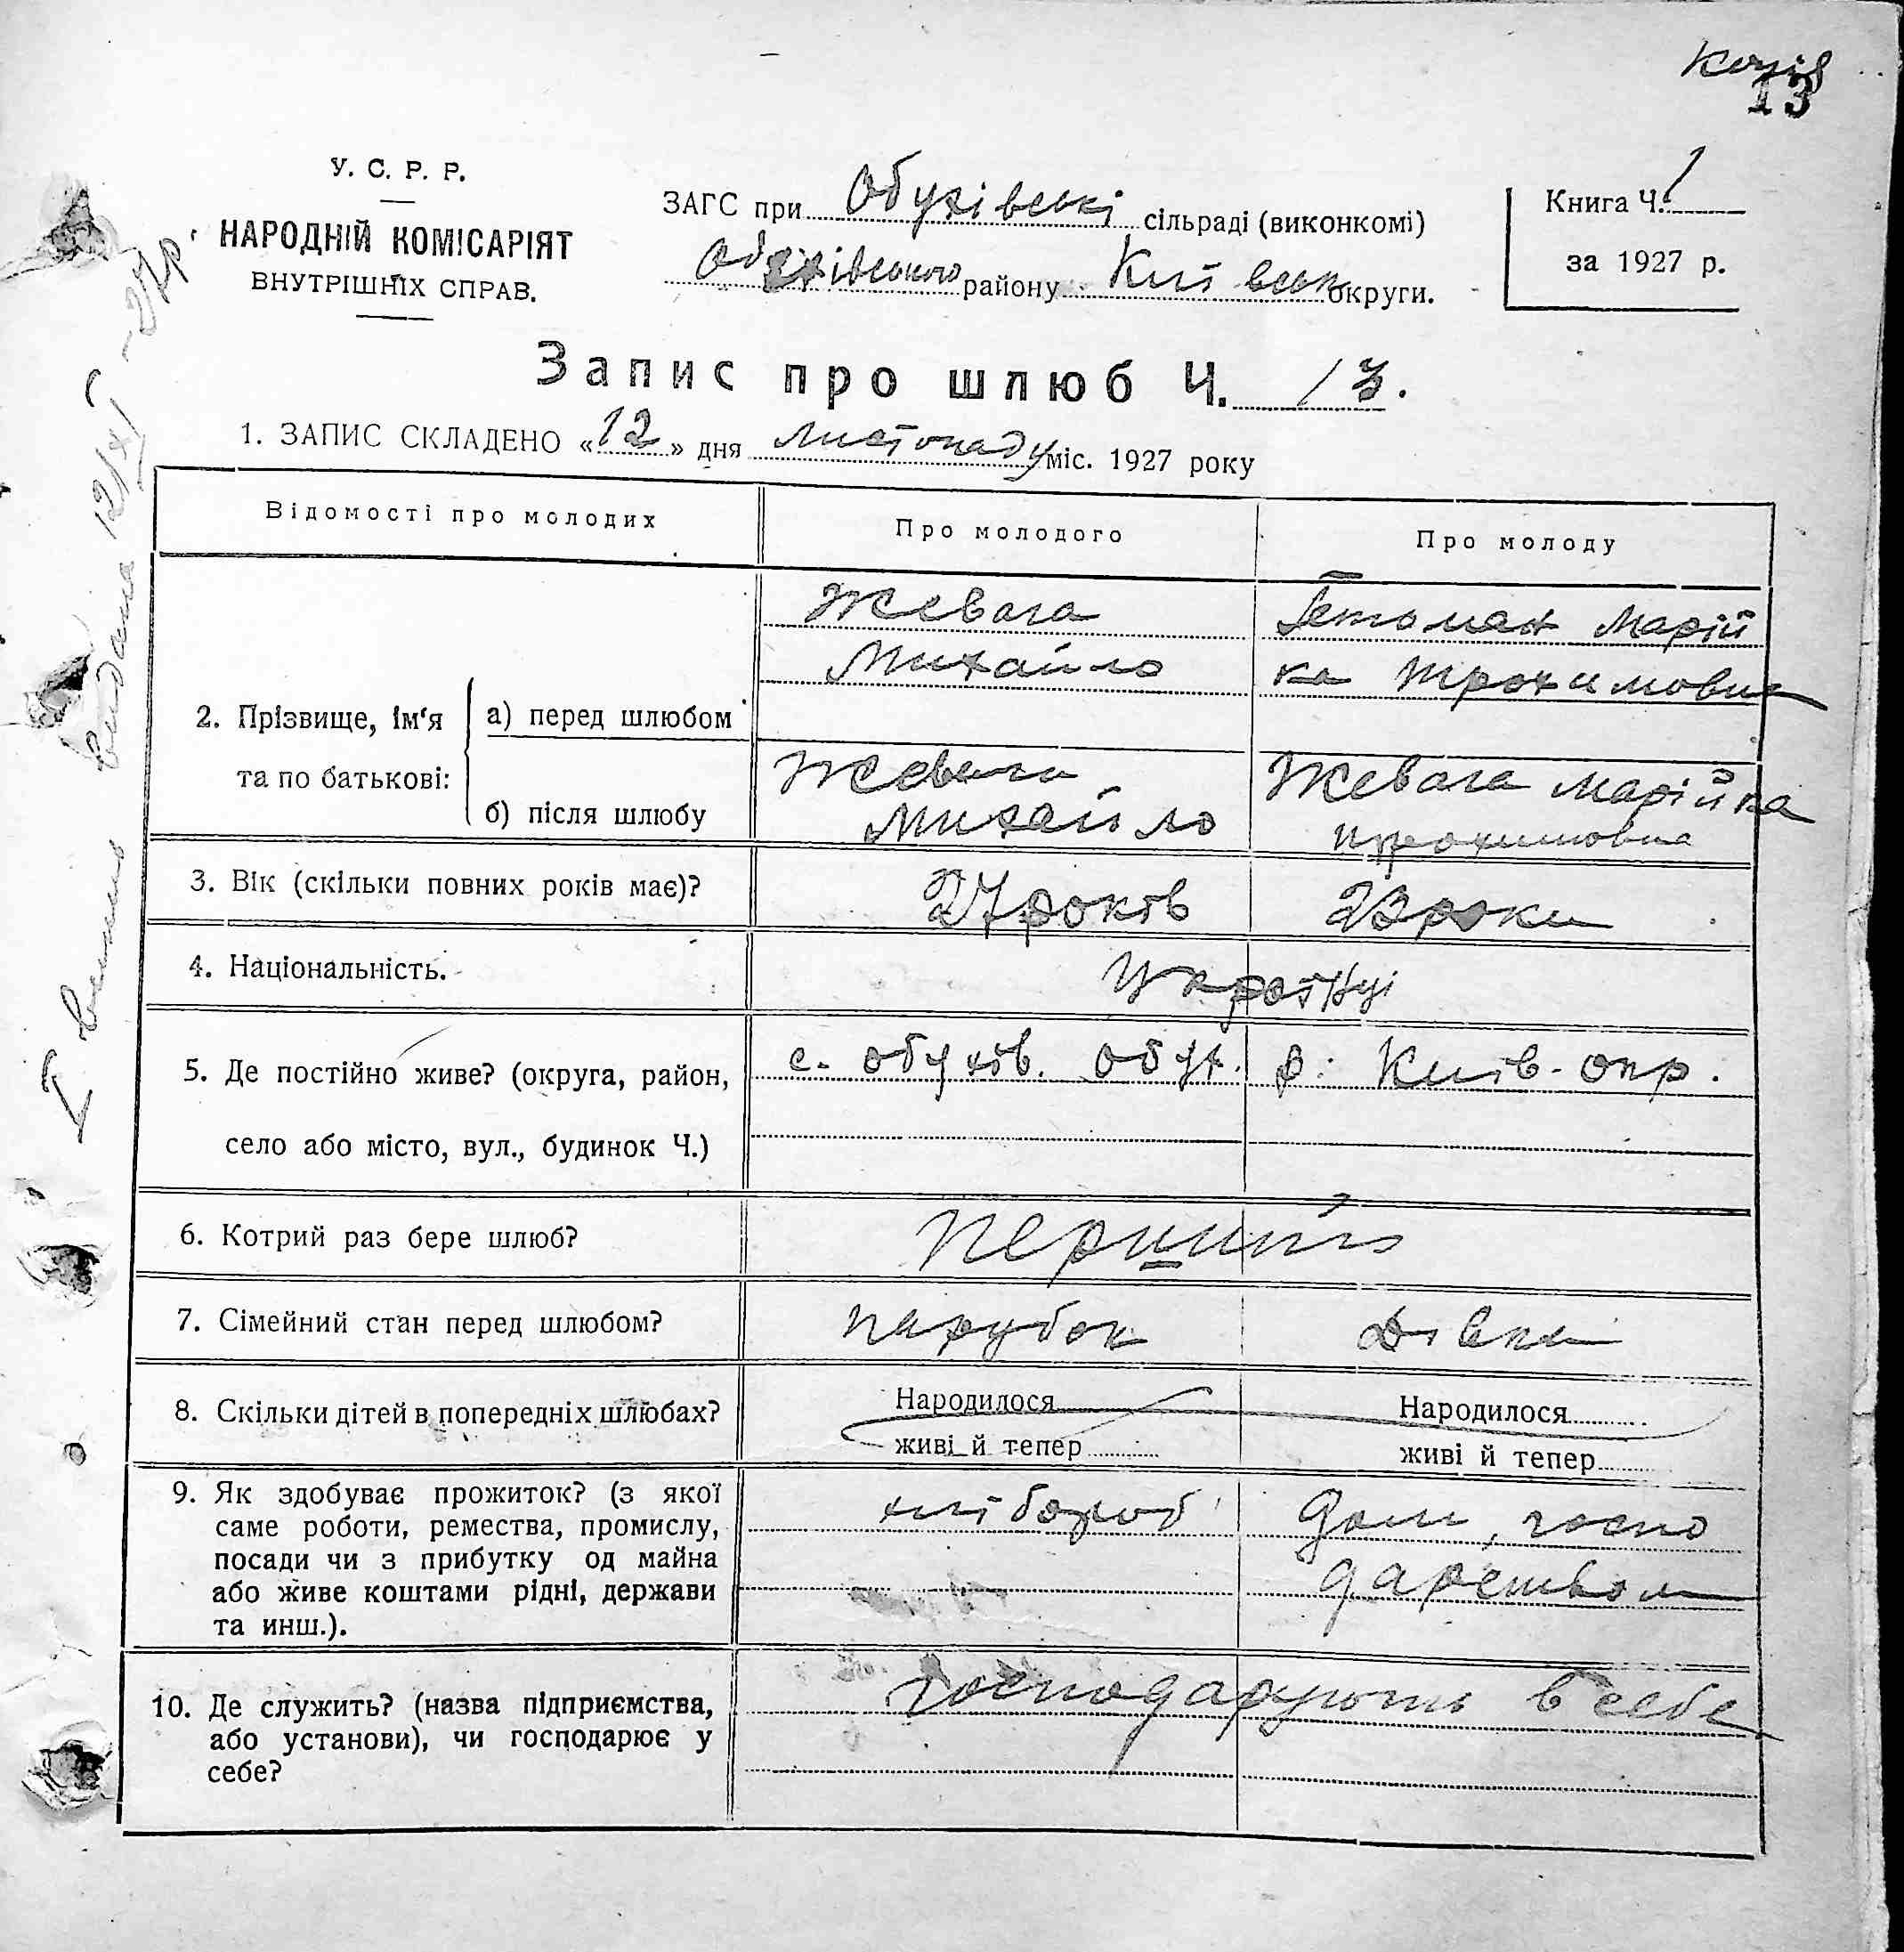 13
У. С. Р. Р.
НАРОДНІЙ КОМІСАРІЯТ
ВНУТРІШНІХ СПРАВ.
ЗАГС при Обухівські сільраді (виконкомі)
Обухівського району Київськ округи.
Книга Ч. 1
за 1927 р.
Запис про шлюб Ч. 13.
1. ЗАПИС СКЛАДЕНО «12» дня листопаду міс. 1927 року
Відомості про молодих
Про молодого
Про молоду
2. Прізвище, ім'я та по батькові:
а) перед шлюбом
Жевага
Михайло
Гетоман Марій
ка Трохимовна
б) після шлюбу
Жевага
Михайло
Жевага Марійка
Трохимовна
3. Вік (скільки повних років має)?
27 років
23 роки
4. Національність.
Українці
5. Де постійно живе? (округа, район,
село або місто, вул., будинок Ч.)
с. Обухів. Обух. р. Київ. окр.
6. Котрий раз бере шлюб?
перший
7. Сімейний стан перед шлюбом?
парубок
Дівка
8. Скільки дітей в попередніх шлюбах?
Народилося
живі й тепер
Народилося
живі й тепер
9. Як здобуває прожиток? (з якої
саме роботи, ремества, промислу,
посади чи з прибутку од майна
або живе коштами рідні, держави
та инш.).
хлібороб
Дом, госпо
дарством
10. Де служить? (назва підприємства,
або установи), чи господарює у
себе?
господарують в себе
видана 12/XI - 27 р.